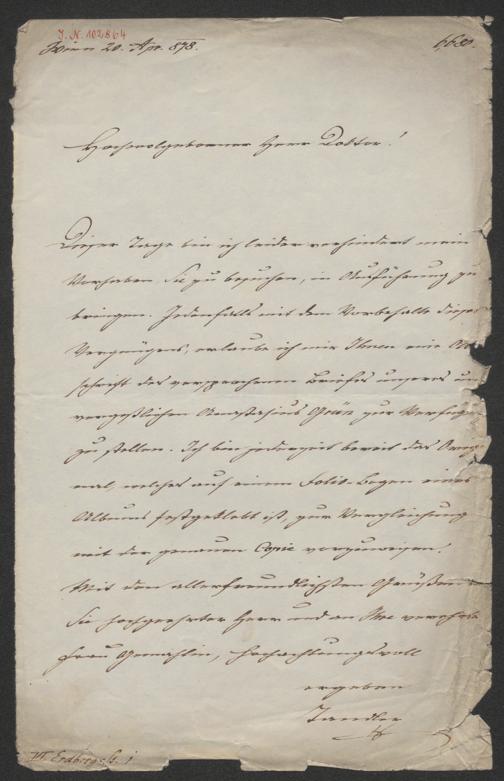 J. N. 102.864
Wien 20. Apr. 898.
Hochwolgeborner Herr Doktor!
Dieser Tage bin ich leider verhindert mein
Vorhaben, Sie zu besuchen, in Ausführung zu
bringen. Jedenfalls mit dem Vorbehalte dieses
Vergnügens, erlaube ich mir Ihnen eine Ab-
schrift des versprochenen Briefes unseres un-
vergeßlichen Anastasius Grün zur Verfügu
zu stellen. Ich bin jederzeit bereit das Orig
nal, welches auf einem Folio-Bogen eines
Albums festgeklebt ist, zur Vergleichung
mit der genauen Copie vorzuweisen.
Mit den allerfreundlichsten Grüßen
Sie hochgeehrter Herr und an Ihre verehrte
Frau Gemahlin, hochachtungsvoll
ergeben
Tandler
III. Erdbergstr. 1